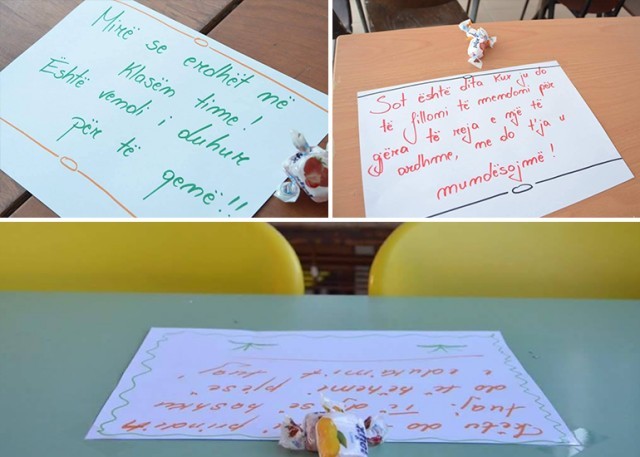 Mirë se erdhët në
klasën time!
Është vendi i duhur
për të qenë!!
Sot është dita kur ju do
të fillomi të mendomi për
gjëra të reja e një të
ardhme, me do t'ja u
mundësojmë!
Këtu do
tuaj. Të së bashku
do të bëhemi pjesë
e edukimit tuaj!